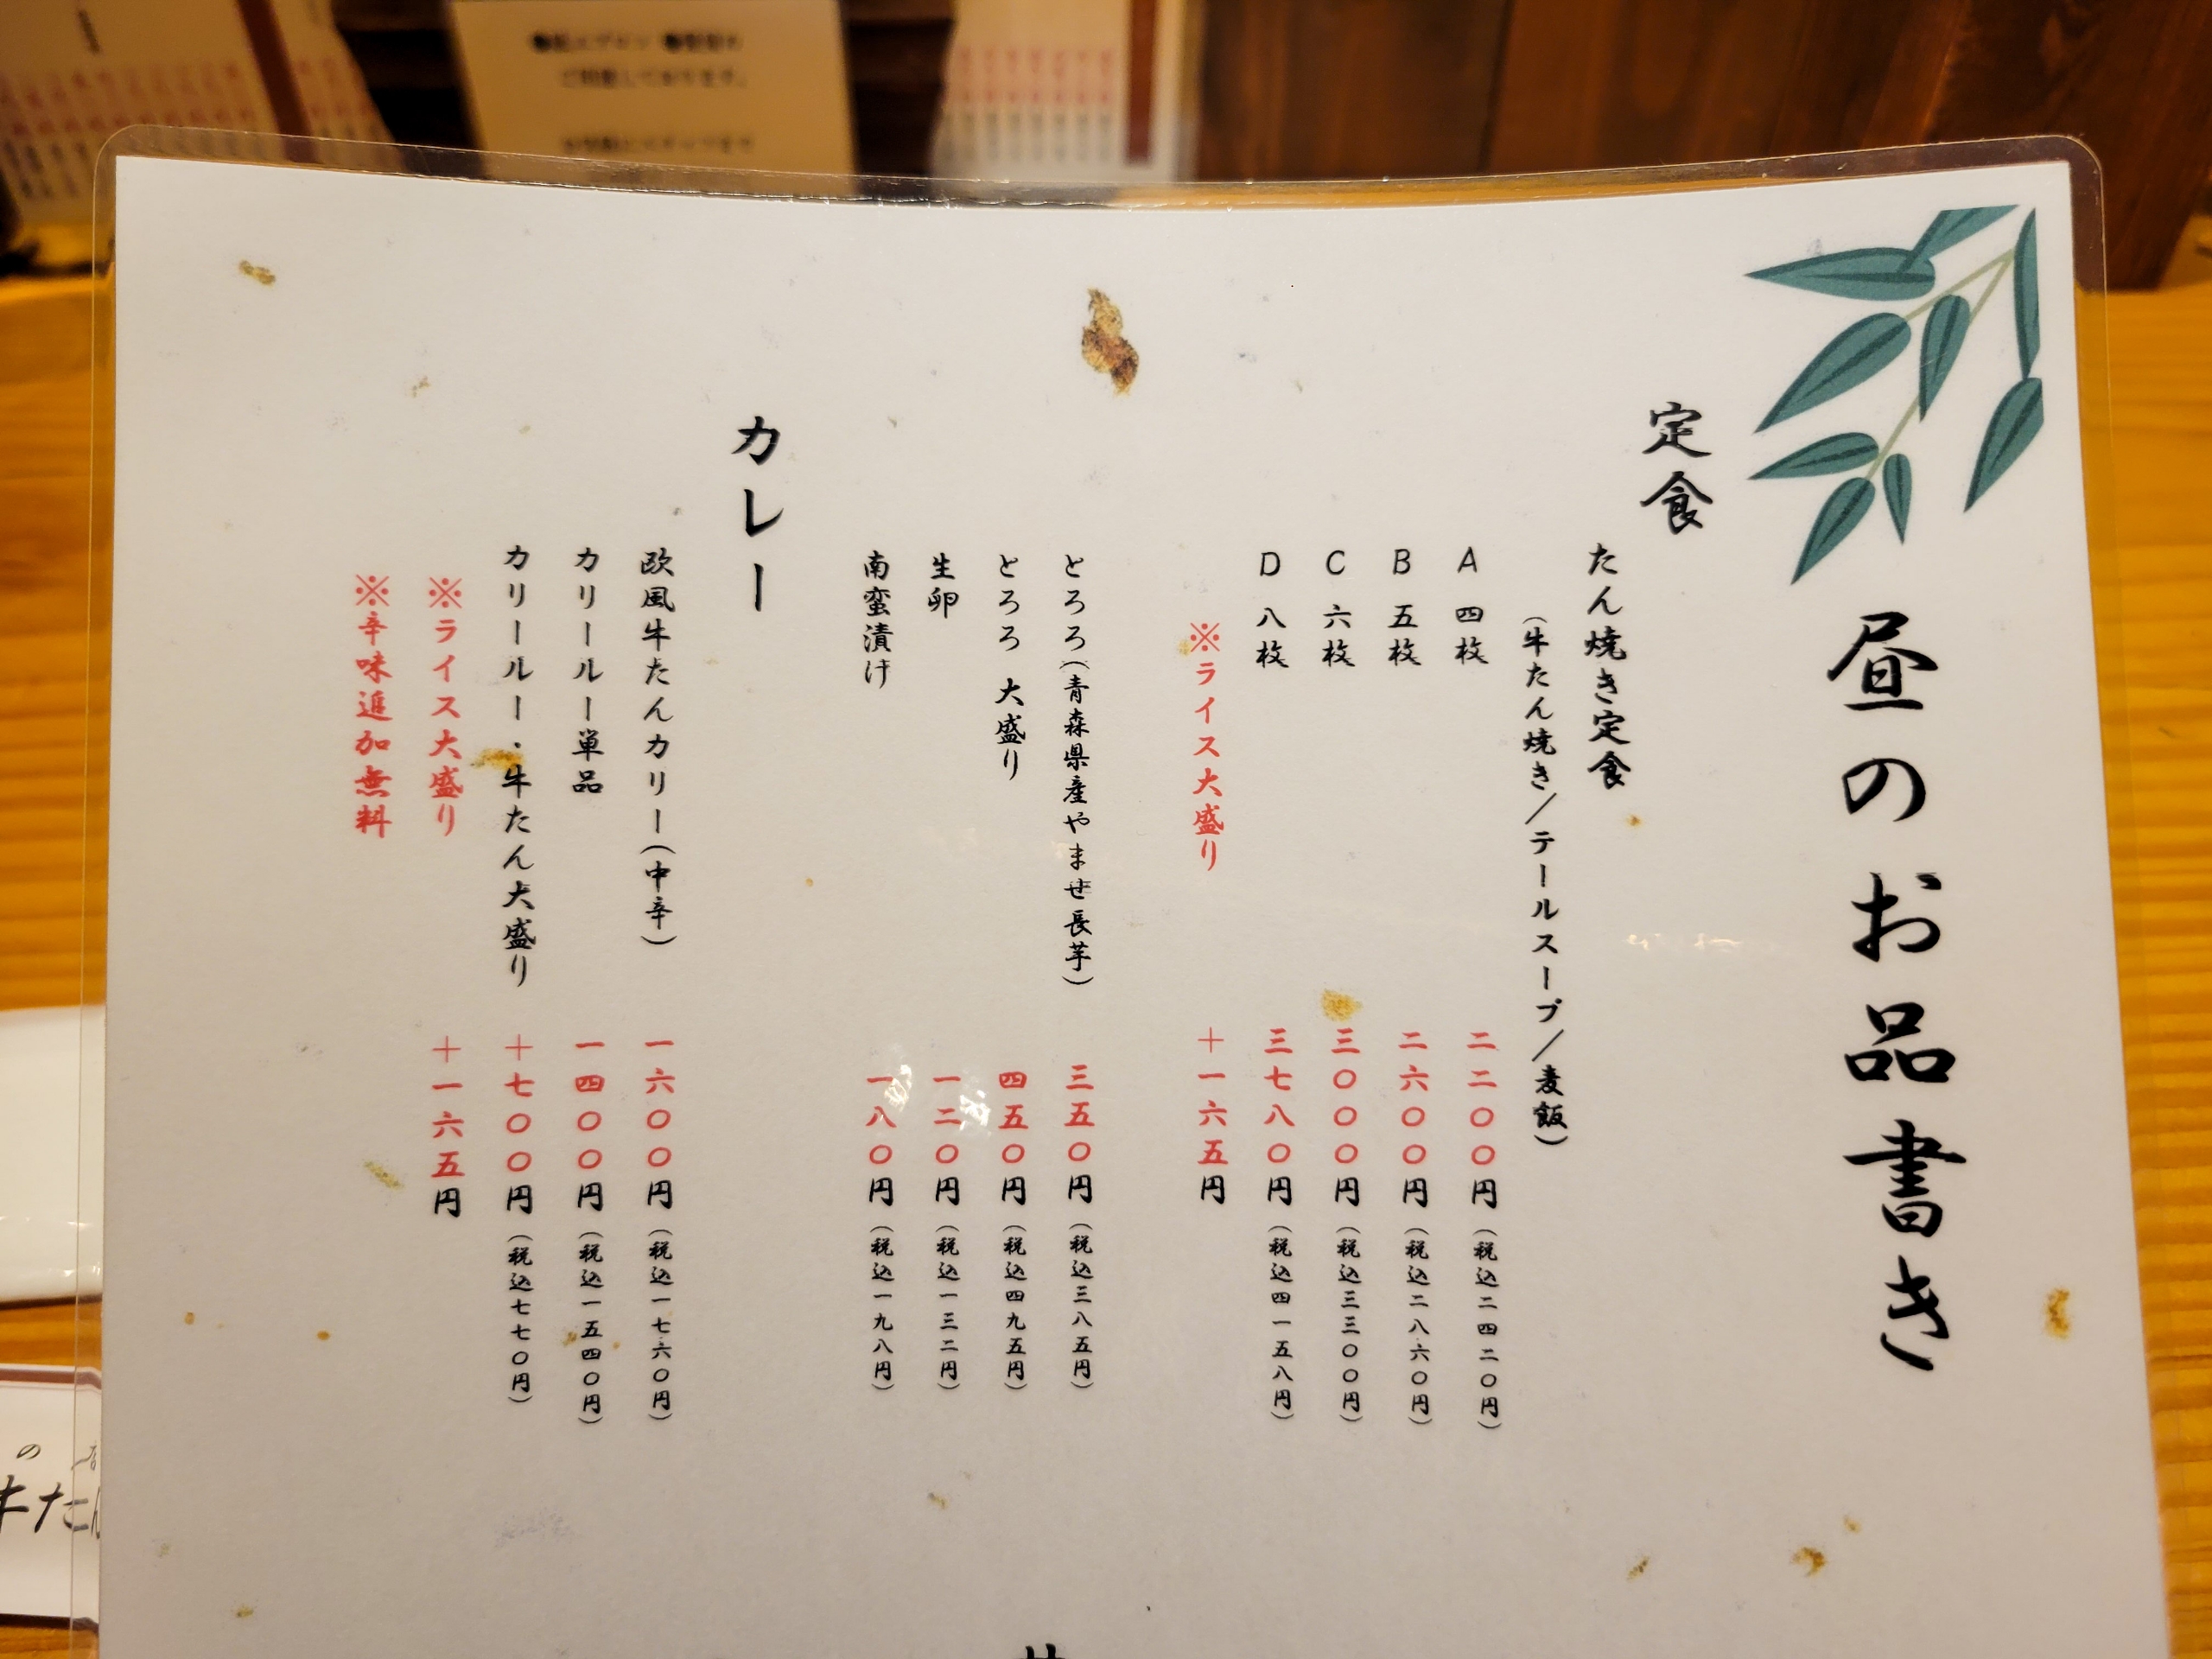 昼のお品書き
定食
たん焼き定食
（牛たん焼き／テールスープ／麦飯）
A 四枚 二二〇〇円（税込二四二〇円）
B 五枚 二六〇〇円（税込二八六〇円）
C 六枚 三〇〇〇円（税込三三〇〇円）
D 八枚 三七八〇円（税込四一五八円）
※ライス大盛り ＋一六五円
とろろ（青森県産やませ長芋） 三五〇円（税込三八五円）
とろろ 大盛り 四五〇円（税込四九五円）
生卵 一二〇円（税込一三二円）
南蛮漬け 一八〇円（税込一九八円）
カレー
欧風牛たんカリー（中辛） 一六〇〇円（税込一七六〇円）
カリールー単品 一四〇〇円（税込一五四〇円）
カリールー・牛たん大盛り ＋七〇〇円（税込七七〇円）
※ライス大盛り ＋一六五円
※辛味追加無料
の
牛たん